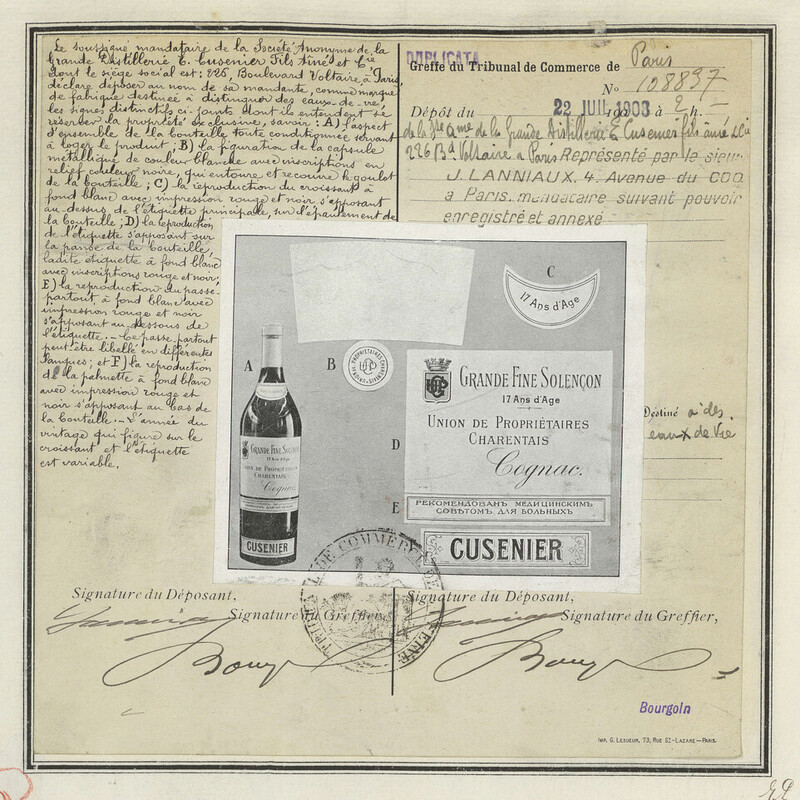 Le soussigné mandataire de la Société Anonyme de la
Grande Distillerie E. Cusenier Fils Aîné et Cie
dont le siège social est : 226, Boulevard Voltaire, à Paris,
déclare déposer au nom de sa mandante, comme marque
de fabrique destinée à distinguer des eaux-de-vie,
les signes distinctifs ci-joints dont ils entendent se
réserver la propriété exclusive, savoir : A) l'aspect
d'ensemble de la bouteille toute conditionnée servant
à loger le produit ; B) la figuration de la capsule
métallique de couleur blanche avec inscriptions en
relief couleur noire, qui entoure et recouvre le goulot
de la bouteille ; C) la reproduction du croissant à
fond blanc avec impression rouge et noir s'apposant
au dessus de l'étiquette principale, sur l'épaulement de
la bouteille ; D) la reproduction
de l'étiquette s'apposant sur
la panse de la bouteille,
ladite étiquette à fond blanc
avec inscriptions rouge et noir ;
E) la reproduction du passe-
partout à fond blanc avec
impression rouge et noir
s'apposant au dessous de
l'étiquette. - Ce passe-partout
peut être libellé en différentes
langues ; et F) la reproduction
de la palmette à fond blanc
avec impression rouge et
noir s'apposant au bas de
la bouteille. - L'année du
vintage qui figure sur le
croissant et l'étiquette
est variable.
DUPLICATA
Greffe du Tribunal de Commerce de Paris
No 108837
Dépôt du 22 JUIL 1903 à 2 h. -
de la Sté Ame de la Grande Distillerie E. Cusenier fils aîné & Cie
226 Bd Voltaire à Paris Représenté par le sieur
J. LANNIAUX, 4, Avenue du COQ
à Paris, mandataire suivant pouvoir
enregistré et annexé
A
B
C
17 Ans d'Age
D
GRANDE FINE SOLENÇON
17 Ans d'Age
UNION DE PROPRIÉTAIRES
CHARENTAIS
Cognac.
E
РЕКОМЕНДОВАНЪ МЕДИЦИНСКИМЪ
СОВѢТОМЪ ДЛЯ БОЛЬНЫХЪ
CUSENIER
GRANDE FINE SOLENÇON
17 Ans d'Age
UNION DE PROPRIÉTAIRES
CHARENTAIS
Cognac
CUSENIER
Destiné à des
eaux de Vie
TRIBUNAL DE COMMERCE DE LA SEINE
Signature du Déposant,
Signature du Greffier,
Signature du Déposant,
Signature du Greffier,
Bourgoin
IMP. G. LESUEUR, 73, RUE ST-LAZARE-PARIS.